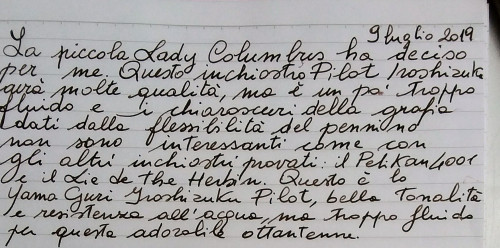 9 luglio 2019
La piccola Lady Columbus ha deciso
per me. Questo inchiostro Pilot Iroshizuku
avrà molte qualità, ma è un po' troppo
fluido e i chiaroscuri della grafia
dati dalla flessibilità del pennino
non sono interessanti come con
gli altri inchiostri provati: il Pelikan 4001
e il Lie de the Herbin. Questo è lo
Yama Guri Iroshizuku Pilot, bella tonalità
e resistenza all'acqua, ma troppo fluido
per questa adorabile ottantenne.